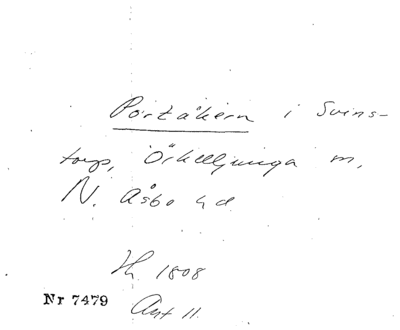 Portåkern i Svins-
torp, Örkelljunga m,
N. Åsbo hd
Hh. 1808
Nr 7479
Akt 11.